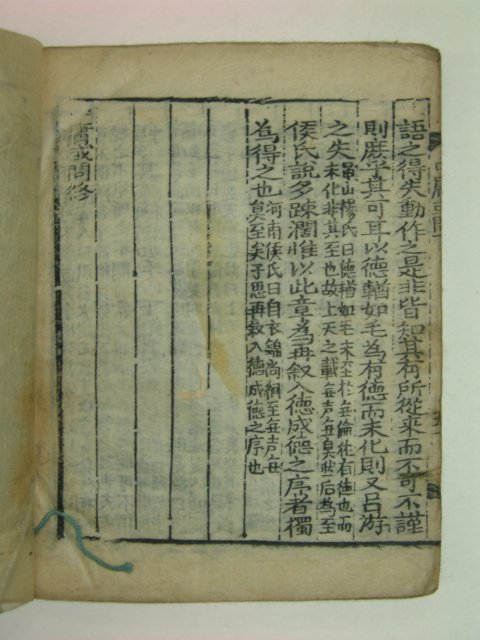 語之得失動作之是非皆知其有所從來而不可不謹
則庶乎其可耳以德輶如毛為有德而未化則又呂游
之失龜山楊氏曰德輶如毛未至於無倫猶有德也而
未化非其至也故上天之載無聲無臭然後為至
侯氏說多踈濶惟以此章為再叙入德成德之序者獨
為得之也河南侯氏曰自衣錦尚絅至無聲無
臭至矣子思再叙入德成德之序也
庸或問終